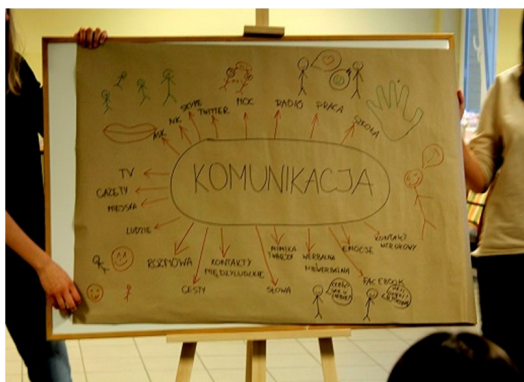 SKYPE
NK
TWITTER
MOC
RADIO
PRACA
SZKOŁA
KOMUNIKACJA
TV
GAZETY
MIEJSKA
LUDZIE
ROZMOWA
GESTY
KONTAKTY
MIĘDZYLUDZKIE
SŁOWA
MIMIKA
TWARZY
WERBALNA
NIEWERBALNA
EMOCJE
KONTAKT
WZROKOWY
FACEBOOK